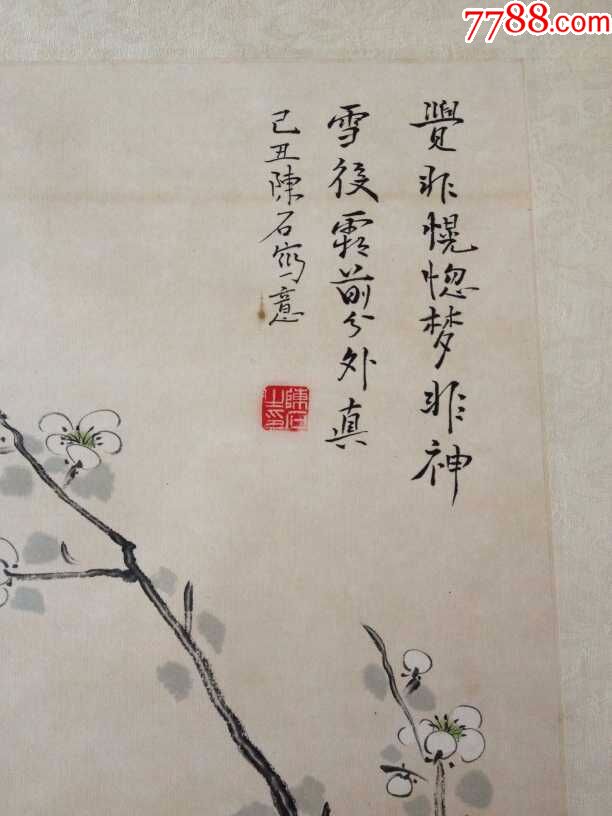 7788.com
覺非幌惚梦非神
雪後霜前分外真
己丑陳石寫意
陳石之印